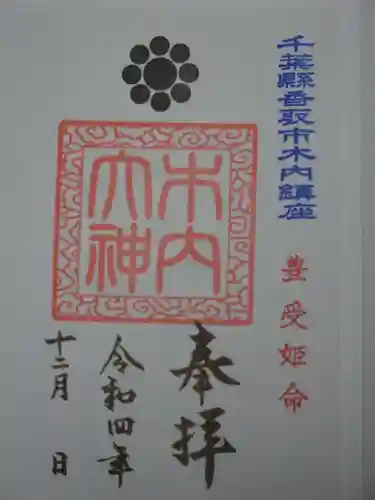 千葉縣香取市木内鎮座
豊受姫命
木内
大神
奉拝
令和四年
十二月 日